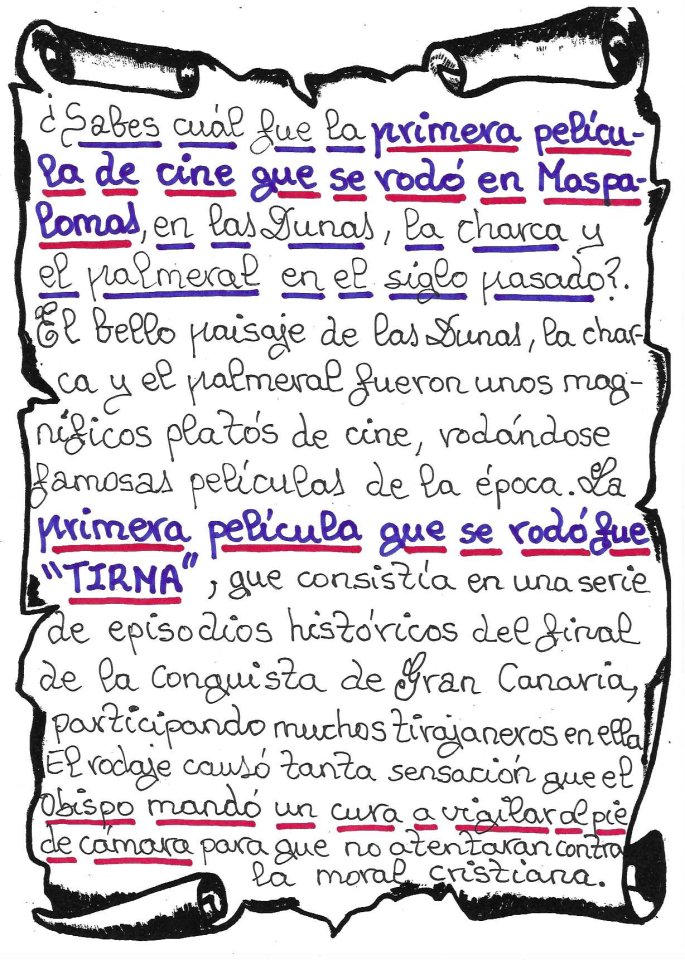 ¿Sabes cuál fue la primera pelícu-
la de cine que se rodó en Maspa-
lomas, en las Dunas, la charca y
el palmeral en el siglo pasado?.
El bello paisaje de las Dunas, la char-
ca y el palmeral fueron unos mag-
níficos platós de cine, rodándose
famosas películas de la época. La
primera película que se rodó fue
"TIRMA", que consistía en una serie
de episodios históricos del final
de la conquista de Gran Canaria,
participando muchos tirajaneros en ella
El rodaje causó tanta sensación que el
Obispo mandó un cura a vigilar al pie
de cámara para que no atentaran contra
la moral cristiana.